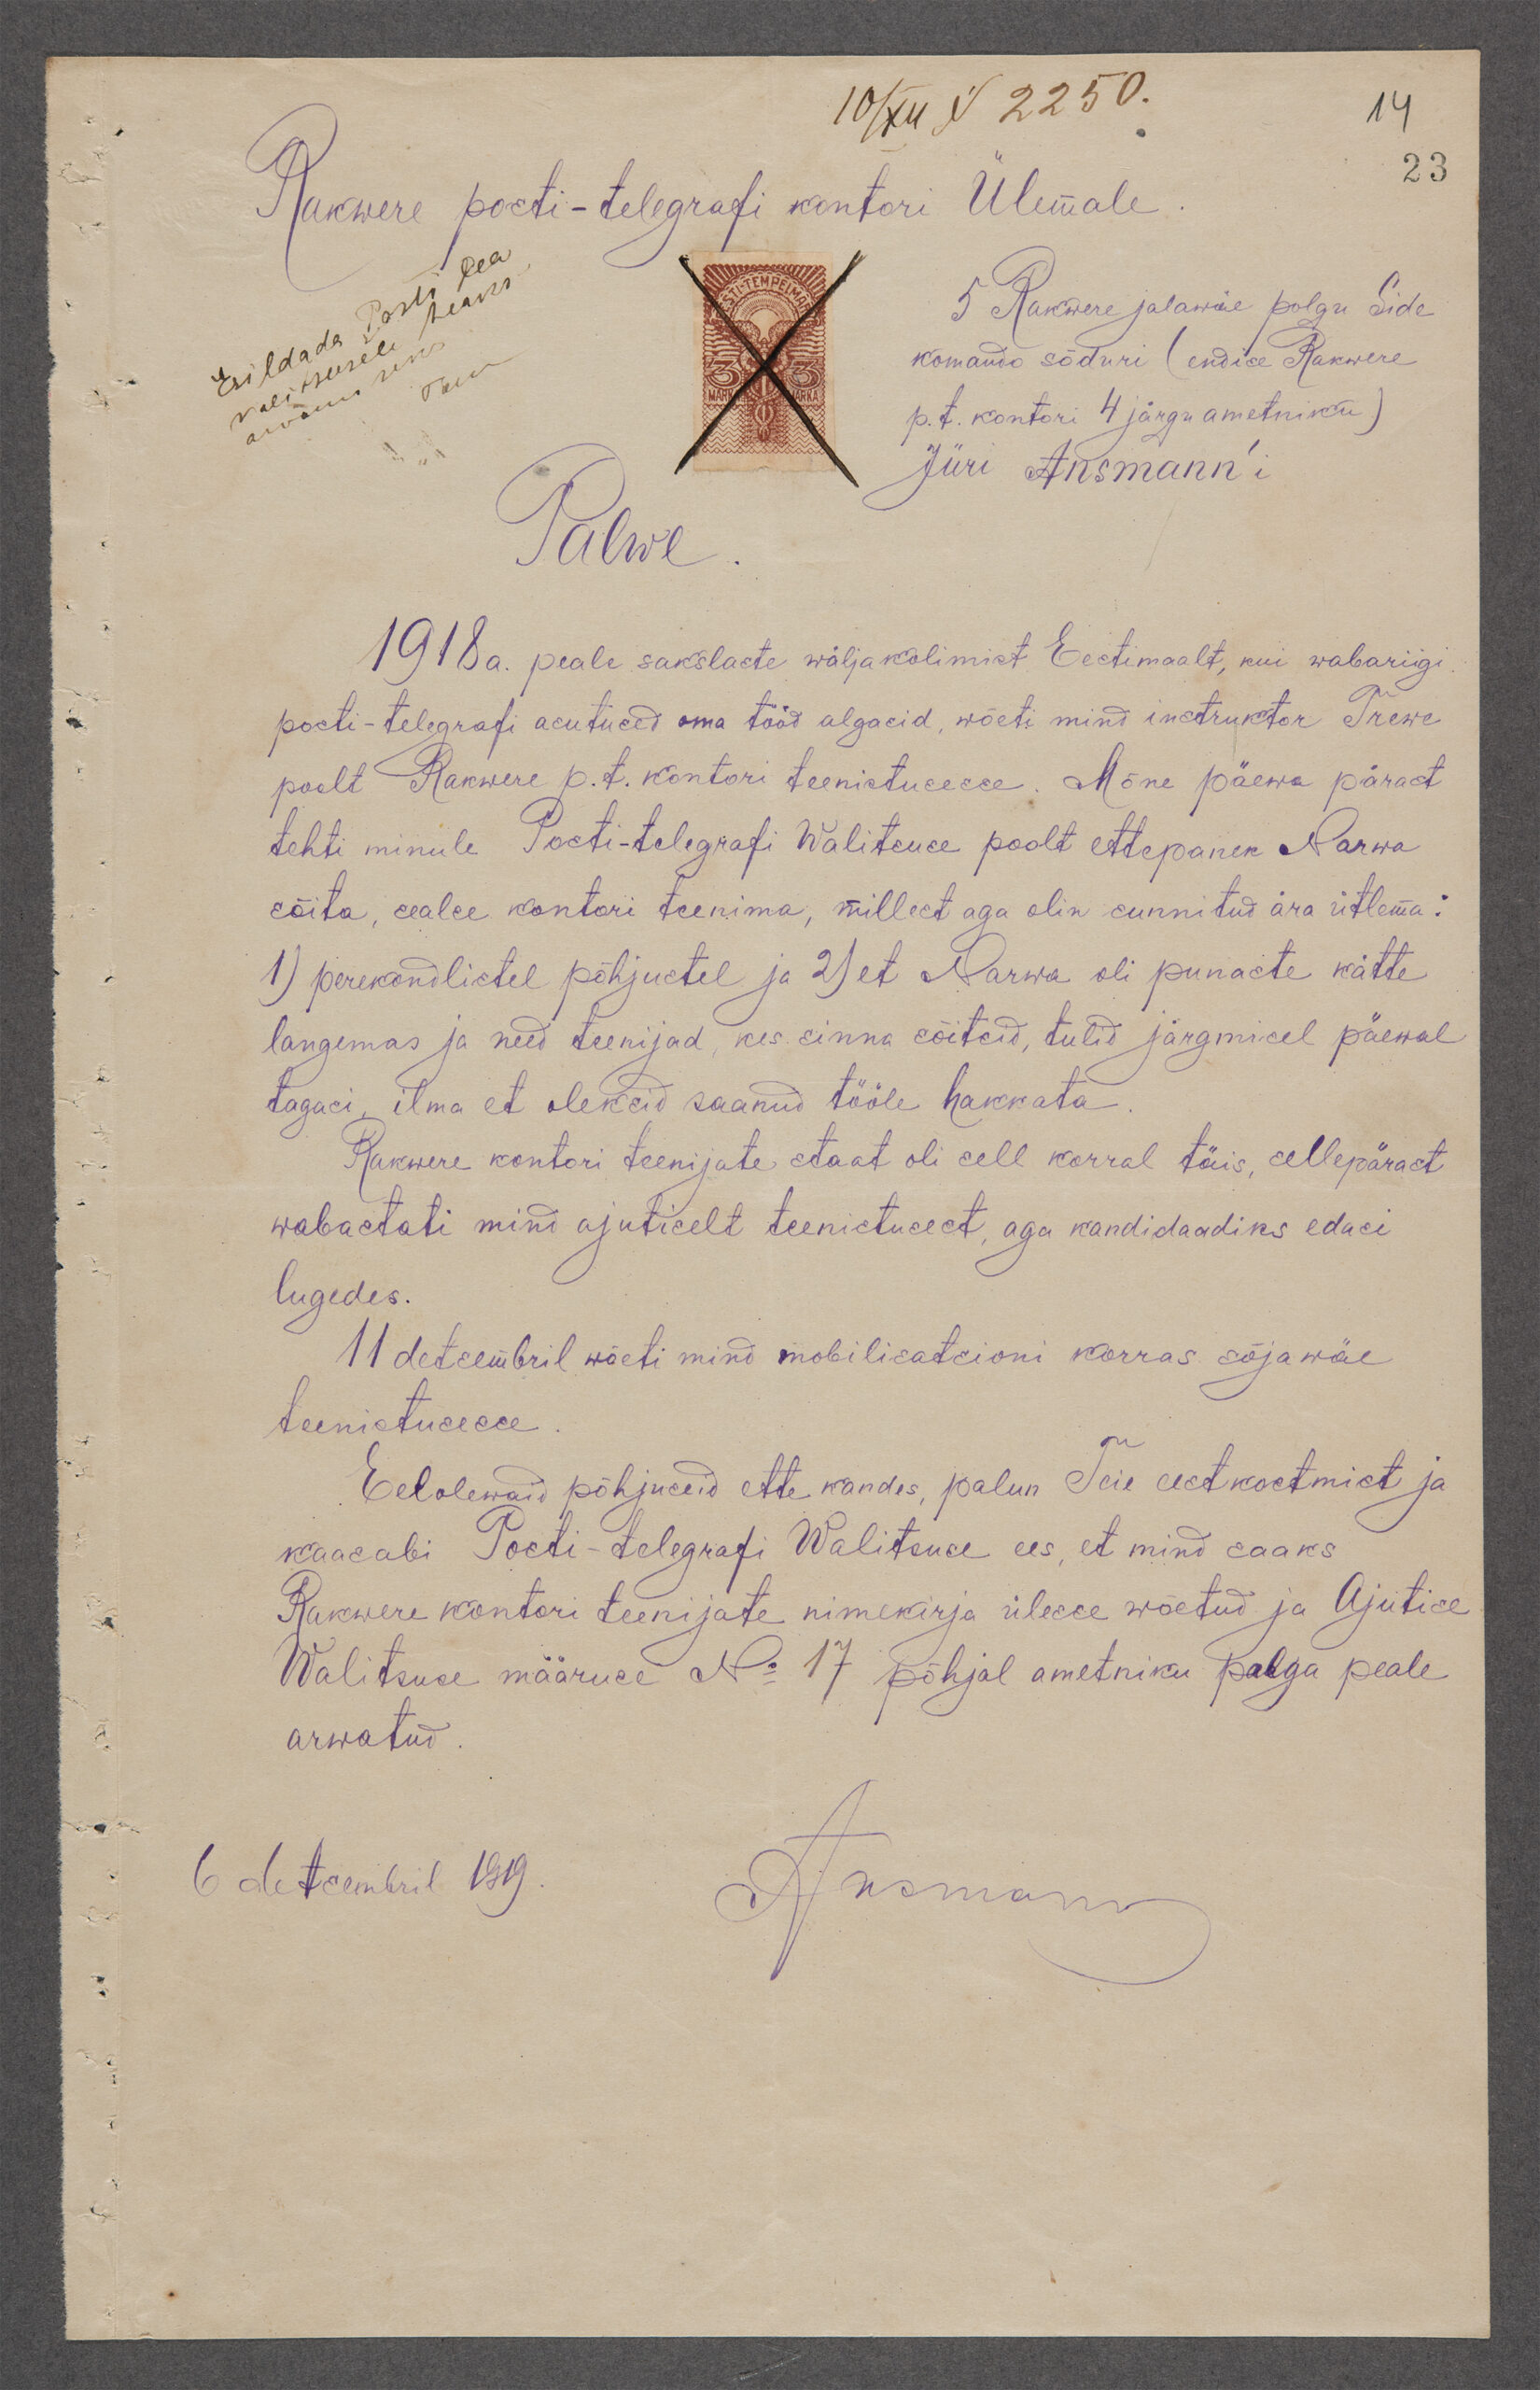 10/XII № 2250.
14
23
Rakwere posti-telegrafi kontori Ülemale.
Esildada Posti pea
valitsusele heaks
arvamiseks
EESTI-TEMPELMARK
3 3
MARKA MARKA
5 Rakwere jalawäe polgu Side
komando sõduri (endise Rakwere
p.t. kontori 4 järgu ametniku)
Jüri Ansmann'i
Palwe.
1918 a. peale sakslaste wäljakolimist Eestimaalt, kui wabariigi
posti-telegrafi asutused oma tööd algasid, wõeti mind instruktor Trewe
poolt Rakwere p.t. kontori teenistusesse. Mõne päewa pärast
tehti minule Posti-telegrafi Walitsuse poolt ettepanek Narwa
sõita, sealse kontori teenima, millest aga olin sunnitud ära ütlema:
1) perekondlistel põhjustel ja 2) et Narwa oli punaste kätte
langemas ja need teenijad, kes sinna sõitsid, tulid järgmisel päewal
tagasi, ilma et oleksid saanud tööle hakkata.
Rakwere kontori teenijate staat oli sell korral täis, sellepärast
wabastati mind ajutiselt teenistusest, aga kandidaadiks edasi
lugedes.
11 detsembril wõeti mind mobilisatsioni korras sõjawäe
teenistusesse.
Eelolewaid põhjuseid ette kandes, palun Teie eestkostmist ja
kaasabi Posti-telegrafi Walitsuse ees, et mind saaks
Rakwere kontori teenijate nimekirja ülesse wõetud ja Ajutise
Walitsuse määruse № 17 põhjal ametniku palga peale
arwatud.
6 detsembril 1919.
Ansmann